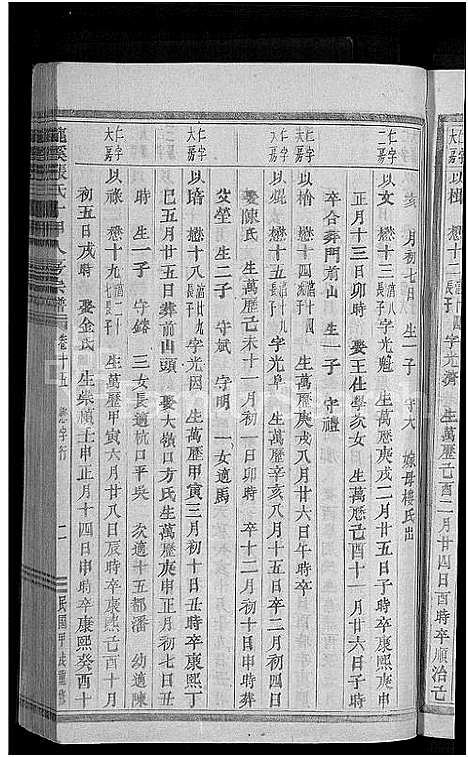 仁字大房 以楫 懋十二 蒲十四長子 字光濟 生萬歷己酉二月廿四日酉時卒順治己
亥 月初七日 生一子 守大 嫁母樓氏出
仁字二房 以文 懋十三 蒲八長子 字光魁 生萬歷庚戌二月廿五日子時卒康熙庚申
正月十三日卯時 娶王仕學公女 生萬歷己酉十一月廿六日子時
卒合葬門前山 生一子 守禮
仁字大房 以 懋十四 蒲十四 生萬歷庚戌八月廿六日午時卒
以 懋十五 長子 字光 生萬歷辛亥八月十五日卒二月初四日
娶陳氏 生萬歷己未十一月初一日卯時 卒十二月初十日申時葬
塋 生二子 守斌 守明 一女適馬
仁字大房 以 懋十八 蒲廿九長子 字光因 生萬歷甲寅三月初十日丑時卒康熙丁
巳五月廿五日葬前山頭 娶大嶺口方氏生萬歷庚申正月初七日丑
時 生一子 守 三女長適杭口平吳 次適十五都潘 幼適陳
仁字大房 以祿 懋十九 蒲二十七長子 生萬歷甲寅六月廿八日辰時卒康熙己酉十月
初五日戌時 娶金氏 生崇禎壬申正月十四日申時卒康熙癸酉十
張氏 宗譜 卷十五 懋字行 二 民國甲戌重修